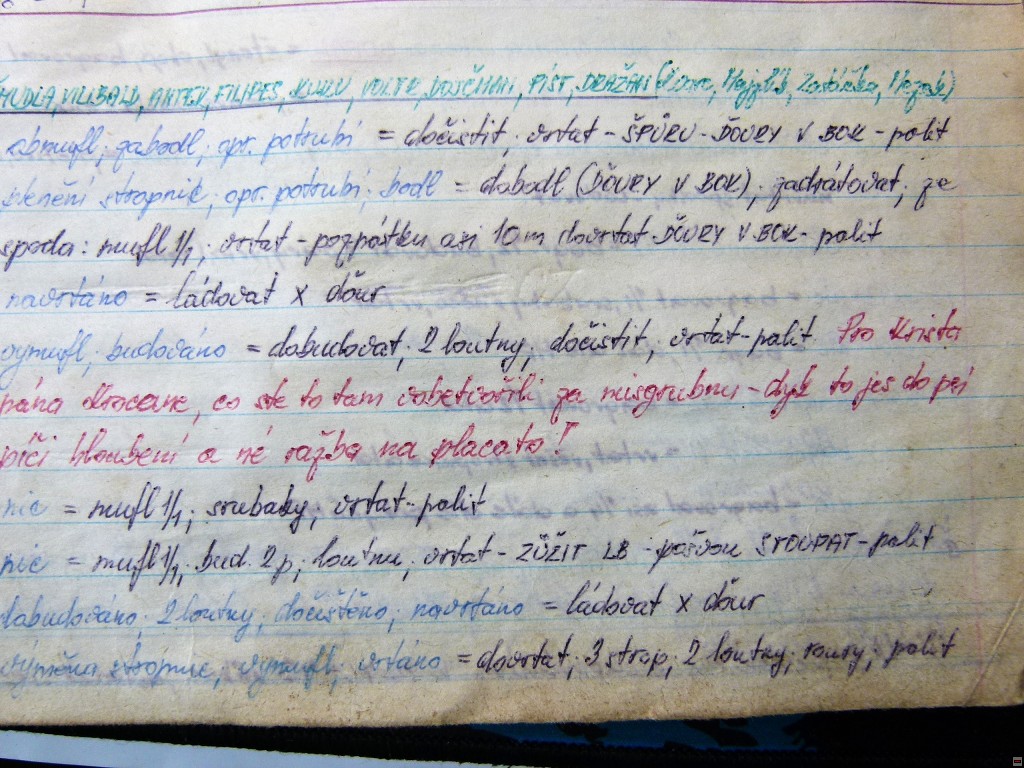 VILIBALD, ANTEK, FILIPES, KUKU, VOLTR, VOJČMAN, PÍST, DRAŽAN (
abmufl; zabodl; opr. potrubí = dočistit; vrtat - ŠPŮRU - ĎOURY V BOK - palit
stropnic; opr. potrubí; bodl = dobodl (ĎOURY V BOK); zadrátovat; ze
spoda: mufl 1/1; vrtat - pozpátku asi 10m dovrtat ĎOURY V BOK - palit
navrtáno = ládovat x ďour
vymufl; budováno = dobudovat; 2 loutny, dočistit, vrtat - palit. Pro Krista
pána Krocane, co ste to tam vobetvořili za misgrubnu - dyk to jes do pří
píči hloubení a né ražba na placato!
nic = mufl 1/1; srubaky, vrtat - palit
nic = mufl 1/1; bud. 2p; loutnu, vrtat - ZŮŽIT LB - pošvou STOUPAT - palit
dobudováno; 2 loutny, dočištěno; navrtáno = ládovat x ďour
výměna stropnic, vymufl; vrtáno = dovrtat; 3 strop; 2 loutny; roury; palit